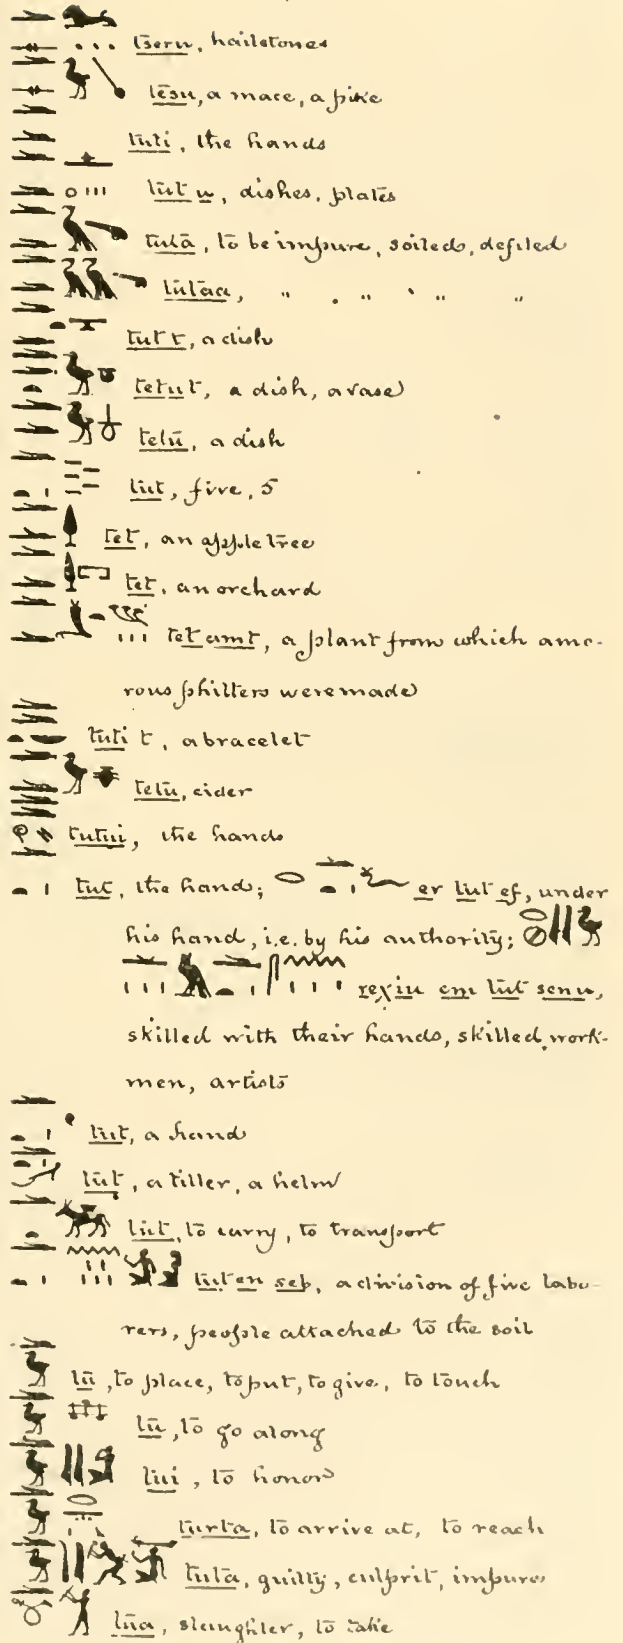 tseru, hailstones
tesu, a mace, a pike
tuti, the hands
tut u, dishes, plates
tuta, to be impure, soiled, defiled
tutaa, " " " "
tut t, a dish
tetut, a dish, a vase
tetu, a dish
tut, five, 5
tet, an apple tree
tet, an orchard
tet amt, a plant from which amo-
rous philters were made
tuti t, a bracelet
tetu, cider
tutui, the hands
tut, the hand; er tut ef, under
his hand, i.e. by his authority;
rexiu em tut senu,
skilled with their hands, skilled work-
men, artists
tut, a hand
tut, a tiller, a helm
tut, to carry, to transport
tut en sep, a division of five labo-
rers, people attached to the soil
tu, to place, to put, to give, to touch
tu, to go along
tui, to honor
turta, to arrive at, to reach
tuta, guilty, culprit, impure
tua, slaughter, to take